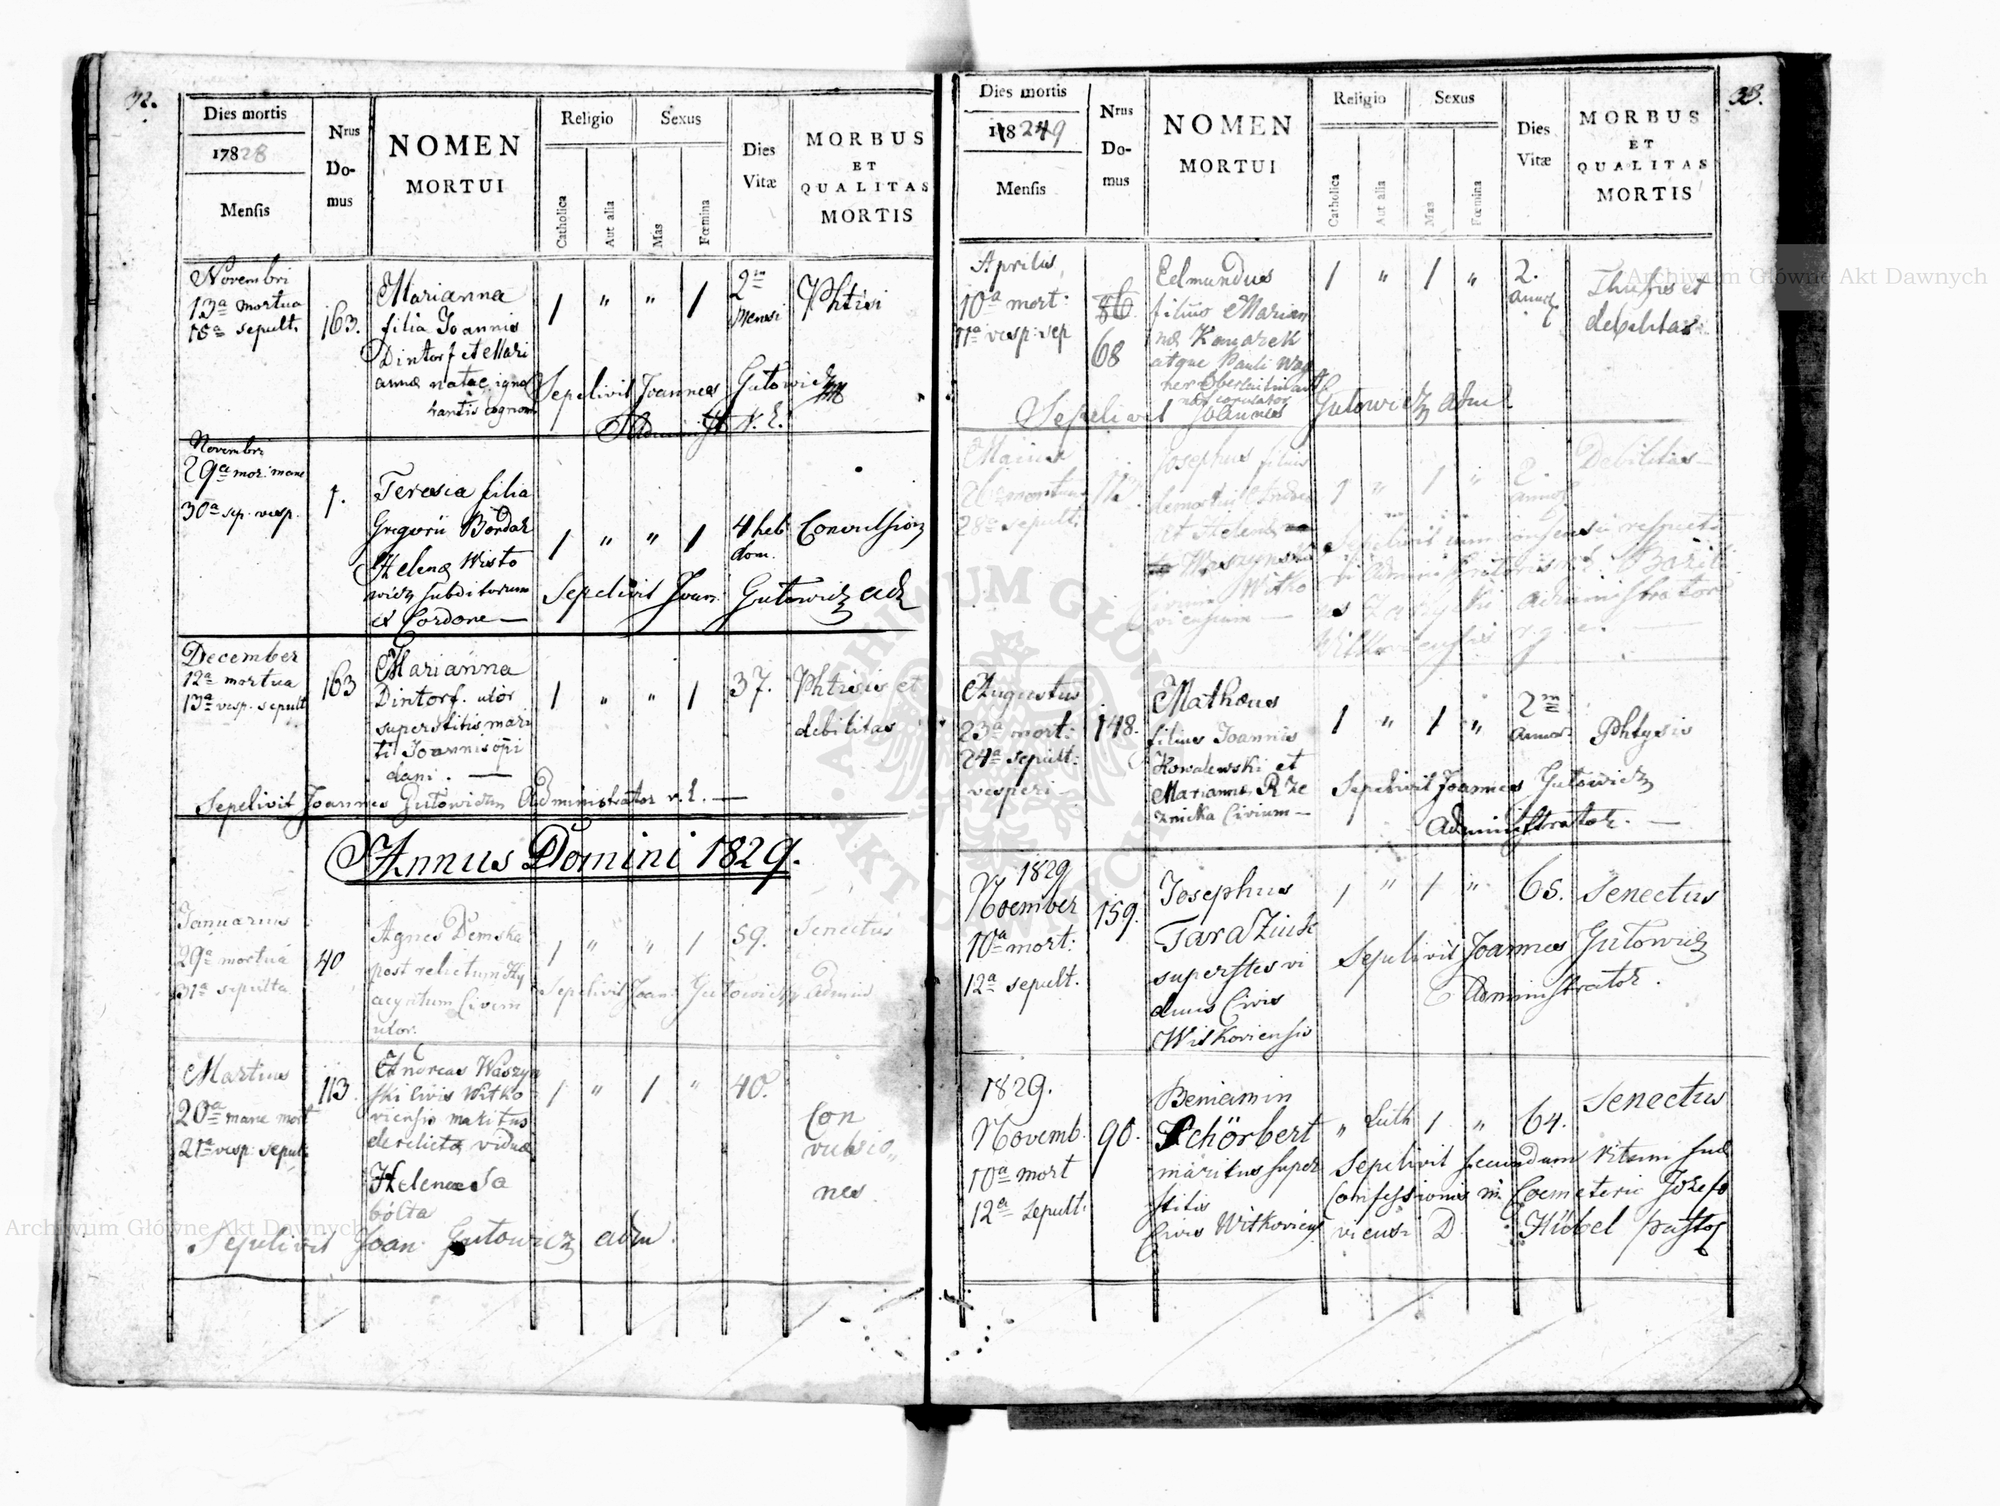 32.
Dies mortis
17828
Mensis
Nrus
Do-
mus
NOMEN
MORTUI
Religio
Catholica
Aut alia
Sexus
Mas
Fœmina
Dies
Vitæ
MORBUS
ET
QUALITAS
MORTIS
Novembri
13a mortua
15a sepult.
163.
Marianna
filia Joannis
Dintorf et Mari
annæ natae igno
rantis cognom
1 " " 1
2
Mensi
Phtisi
Sepelivit Joannes Gutowicz
Administ r. L.
Novembri
29a mor: mane
30a sep. vesp.
1.
Teresia filia
Gregorii Bondar
Helenæ Wisto
wicz subditorum
ex Cordone —
1 " " 1
4 heb
dom.
Convulsion
Sepelivit Joan: Gutowicz adm
December
12a mortua
13a vesp. sepult
163
Marianna
Dintorf. uxor
superstitis mari
ti Joannis opi
dani. —
1 " " 1
37.
Phtisis et
debilitas
Sepelivit Joannes Gutowicz Administrator r. L. —
Annus Domini 1829.
Januarius
29a mortua
31a sepulta
40
Agnes Demska
post relictum Hy
acyntum Civem
uxor.
1 " " 1
59.
Senectus
Sepelivit Joan: Gutowicz Admin
Martius
20a mane mort
21a vesp: sepult:
113.
Andreas Waszyn
ski Civis Witko
viensis maritus
derelictæ viduæ
Helenæ Sa
bolta
1 " 1 "
40.
Con
vulsio„
nes
Sepelivit Joan: Gutowicz adm.
33.
Dies mortis
18249
Mensis
Nrus
Do-
mus
NOMEN
MORTUI
Religio
Catholica
Aut alia
Sexus
Mas
Fœmina
Dies
Vitæ
MORBUS
ET
QUALITAS
MORTIS
Aprilis
10a mort:
11a vesp: sep
86.
68
Edmundus
filius Marian
næ Komarek
atque Pauli Wag
ner
Joannes
1 " 1 "
2.
annor
Thusis et
debilitas
Sepelivit Gutowicz adm.
Maius
26 mortuus
28a sepult.
112
Josephus filius
demortui Andreæ
et Helenæ
Waszynski
civium Witko
viensium —
1 " 1 "
2.
annor
Debilitas —
Sepelivit cum consensu respecti
vi Administratoris r. L. Basili
us Administrator
Witkoviensis r. g. c. —
Augustus
23a mort:
24a sepult:
vesperi —
148.
Mathæus
filius Joannis
Kowalewski et
Mariannæ Rze
znicka Civium —
1 " 1 "
2
annor
Phtysis
Sepelivit Joannes Gutowicz
Administrator. —
1829
November
10a mort:
12a sepult.
159.
Josephus
Taraziuk
superstes vi
duus Civis
Witkoviensis
1 " 1 "
65.
Senectus
Sepelivit Joannes Gutowicz
Administrator.
1829.
Novemb.
10a mort
12a sepult:
90.
Beniamin
Schörbert
maritus super
stitis
Civis Witkoviens
" Luth 1 "
64.
Senectus
Sepelivit secundum ritum suæ
Confessionis in Coemeterio Józefo
viensi D. Hübel pastor
Archiwum Główne Akt Dawnych
Archiwum Główne Akt Dawnych
ARCHIWUM GŁÓWNE AKT DAWNYCH